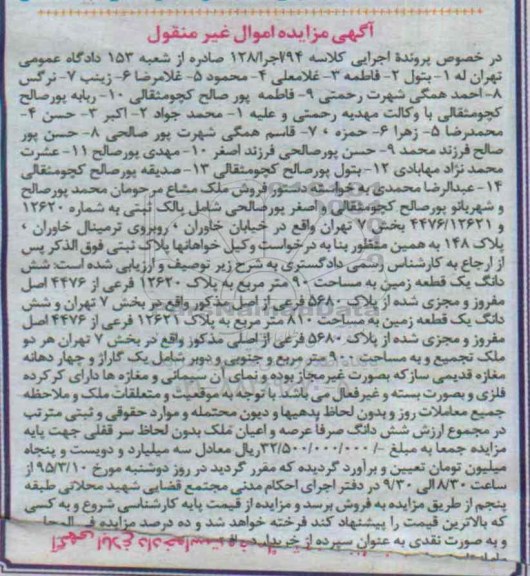 آگهی مزایده اموال غیر منقول
در خصوص پرونده اجرایی کلاسه ۹۴/اجرا/۱۲۸ صادره از شعبه ۱۵۳ دادگاه عمومی
تهران له ۱- بتول ۲- فاطمه ۳- غلامعلی ۴- محمود ۵- غلامرضا ۶- زینب ۷- نرگس
۸- احمد همگی شهرت رحمتی ۹- فاطمه پور صالح کچومثقالی ۱۰- ربابه پورصالح
کچومثقالی با وکالت مهدیه رحمتی و علیه ۱- محمد جواد ۲- اکبر ۳- حسن ۴-
محمدرضا ۵- زهرا ۶- حمزه ، ۷- قاسم همگی شهرت پور صالحی ۸- حسن پور
صالح فرزند محمد ۹- حسن پورصالحی فرزند اصغر ۱۰- مهدی پورصالح ۱۱- عشرت
محمد نژاد مهابادی ۱۲- بتول پورصالح کچومثقالی ۱۳- صدیقه پورصالح کچومثقالی
۱۴- عبدالرضا محمدی به خواسته دستور فروش ملک مشاع مرحومان محمد پورصالح
و شهربانو پورصالح کچومثقالی و اصغر پورصالحی شامل پالک ثبتی به شماره ۱۲۶۲۰
و ۴۴۷۶/۱۲۶۲۱ بخش ۷ تهران واقع در خیابان خاوران ، روبروی ترمینال خاوران ،
پلاک ۱۴۸ به همین منظور بنا به درخواست وکیل خواهانها پلاک ثبتی فوق الذکر پس
از ارجاع به کارشناس رسمی دادگستری به شرح زیر توصیف و ارزیابی شده است: شش
دانگ یک قطعه زمین به مساحت ۹۰ متر مربع به پلاک ۱۲۶۲۰ فرعی از ۴۴۷۶ اصل
مفروز و مجزی شده از پلاک ۵۶۸۰ فرعی از اصل مذکور واقع در بخش ۷ تهران و شش
دانگ یک قطعه زمین به مساحت ۸۱۰ متر مربع به پلاک ۱۲۶۲۱ فرعی از ۴۴۷۶ اصل
مفروز و مجزی شده از پلاک ۵۶۸۰ فرعی از اصلی مذکور واقع در بخش ۷ تهران هر دو
ملک تجمیع و به مساحت ۹۰۰ متر مربع و جنوبی و دوبر شامل یک گاراژ و چهار دهانه
مغازه قدیمی ساز که بصورت غیرمجاز بوده و نمای آن سیمانی و مغازه ها دارای کرکره
فلزی و بصورت بسته و غیرفعال می باشد با توجه به موقعیت و متعلقات ملک و ملاحظه
جمیع معاملات روز و بدون لحاظ بدهیها و دیون محتمله و موارد حقوقی و ثبتی مترتب
در مجموع ارزش شش دانگ صرفا عرصه و اعیان ملک بدون لحاظ سر قفلی جهت پایه
مزایده جمعا به مبلغ -/۳۲/۵۰۰/۰۰۰/۰۰۰ریال معادل سه میلیارد و دویست و پنجاه
میلیون تومان تعیین و برآورد گردیده که مقرر گردید در روز دوشنبه مورخ ۹۵/۳/۱۰ از
ساعت ۸/۳۰ الی ۹/۳۰ در دفتر اجرای احکام مدنی مجتمع قضایی شهید محلاتی طبقه
پنجم از طریق مزایده به فروش برسد و مزایده از قیمت پایه کارشناسی شروع و به کسی
که بالاترین قیمت را پیشنهاد کند فرخته خواهد شد و ده درصد مزایده فی المجلس
و به صورت نقدی به عنوان سپرده از خریدار